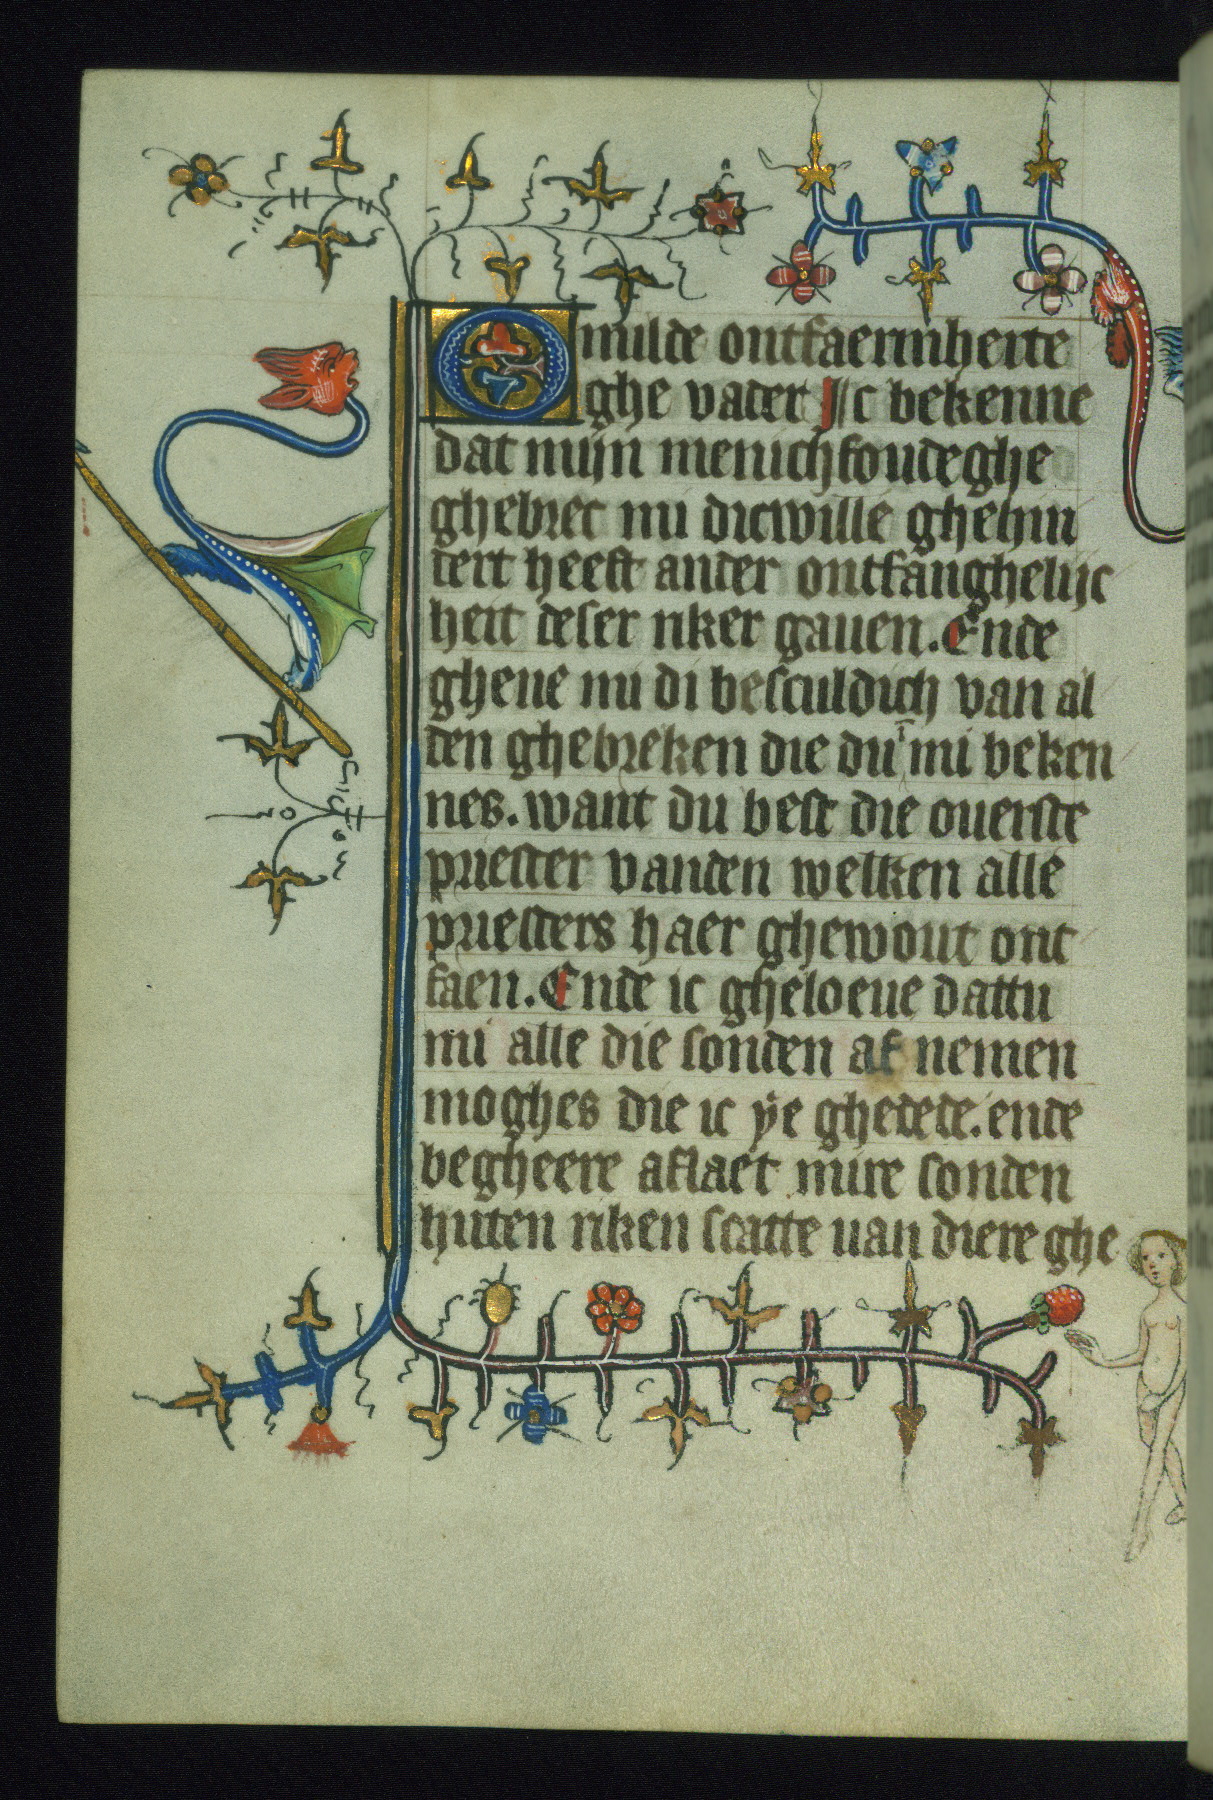 O milde ontfaermherte
ghe vader Ic bekenne
dat mijn menichfoudeghe
ghebrec mi dicwille ghehin
dert heeft ander ontfanghelijc
heit deser riker gauen. Ende
gheue mi di besculdich van al
den ghebreken die du mi beken
nes. want du best die ouerste
priester vanden welken alle
priesters haer ghewout ont
faen. Ende ic gheloeue dattu
mi alle die sonden af nemen
moghes die ic ye ghedede. ende
begheere aflaet mire sonden
huten riken scatte uan diere ghe